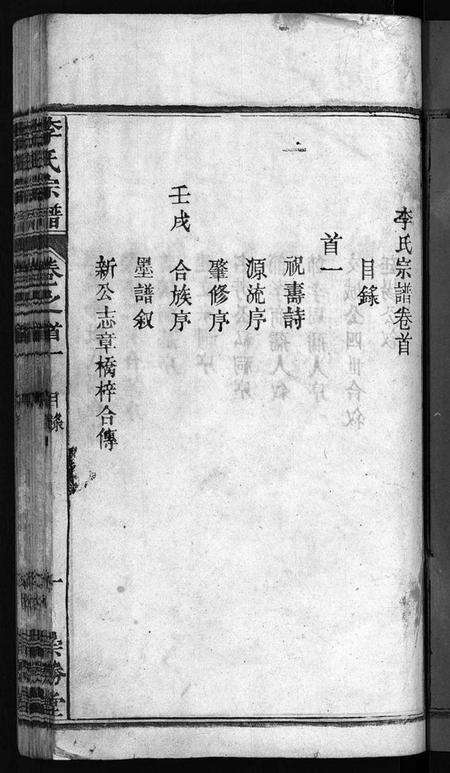 李氏宗譜卷首
目錄
首一
祝壽詩
源流序
肇修序
壬戌 合族序
墨譜叙
新公志章橋梓合傳
李氏宗譜 卷之首 目錄 一 崇勝堂